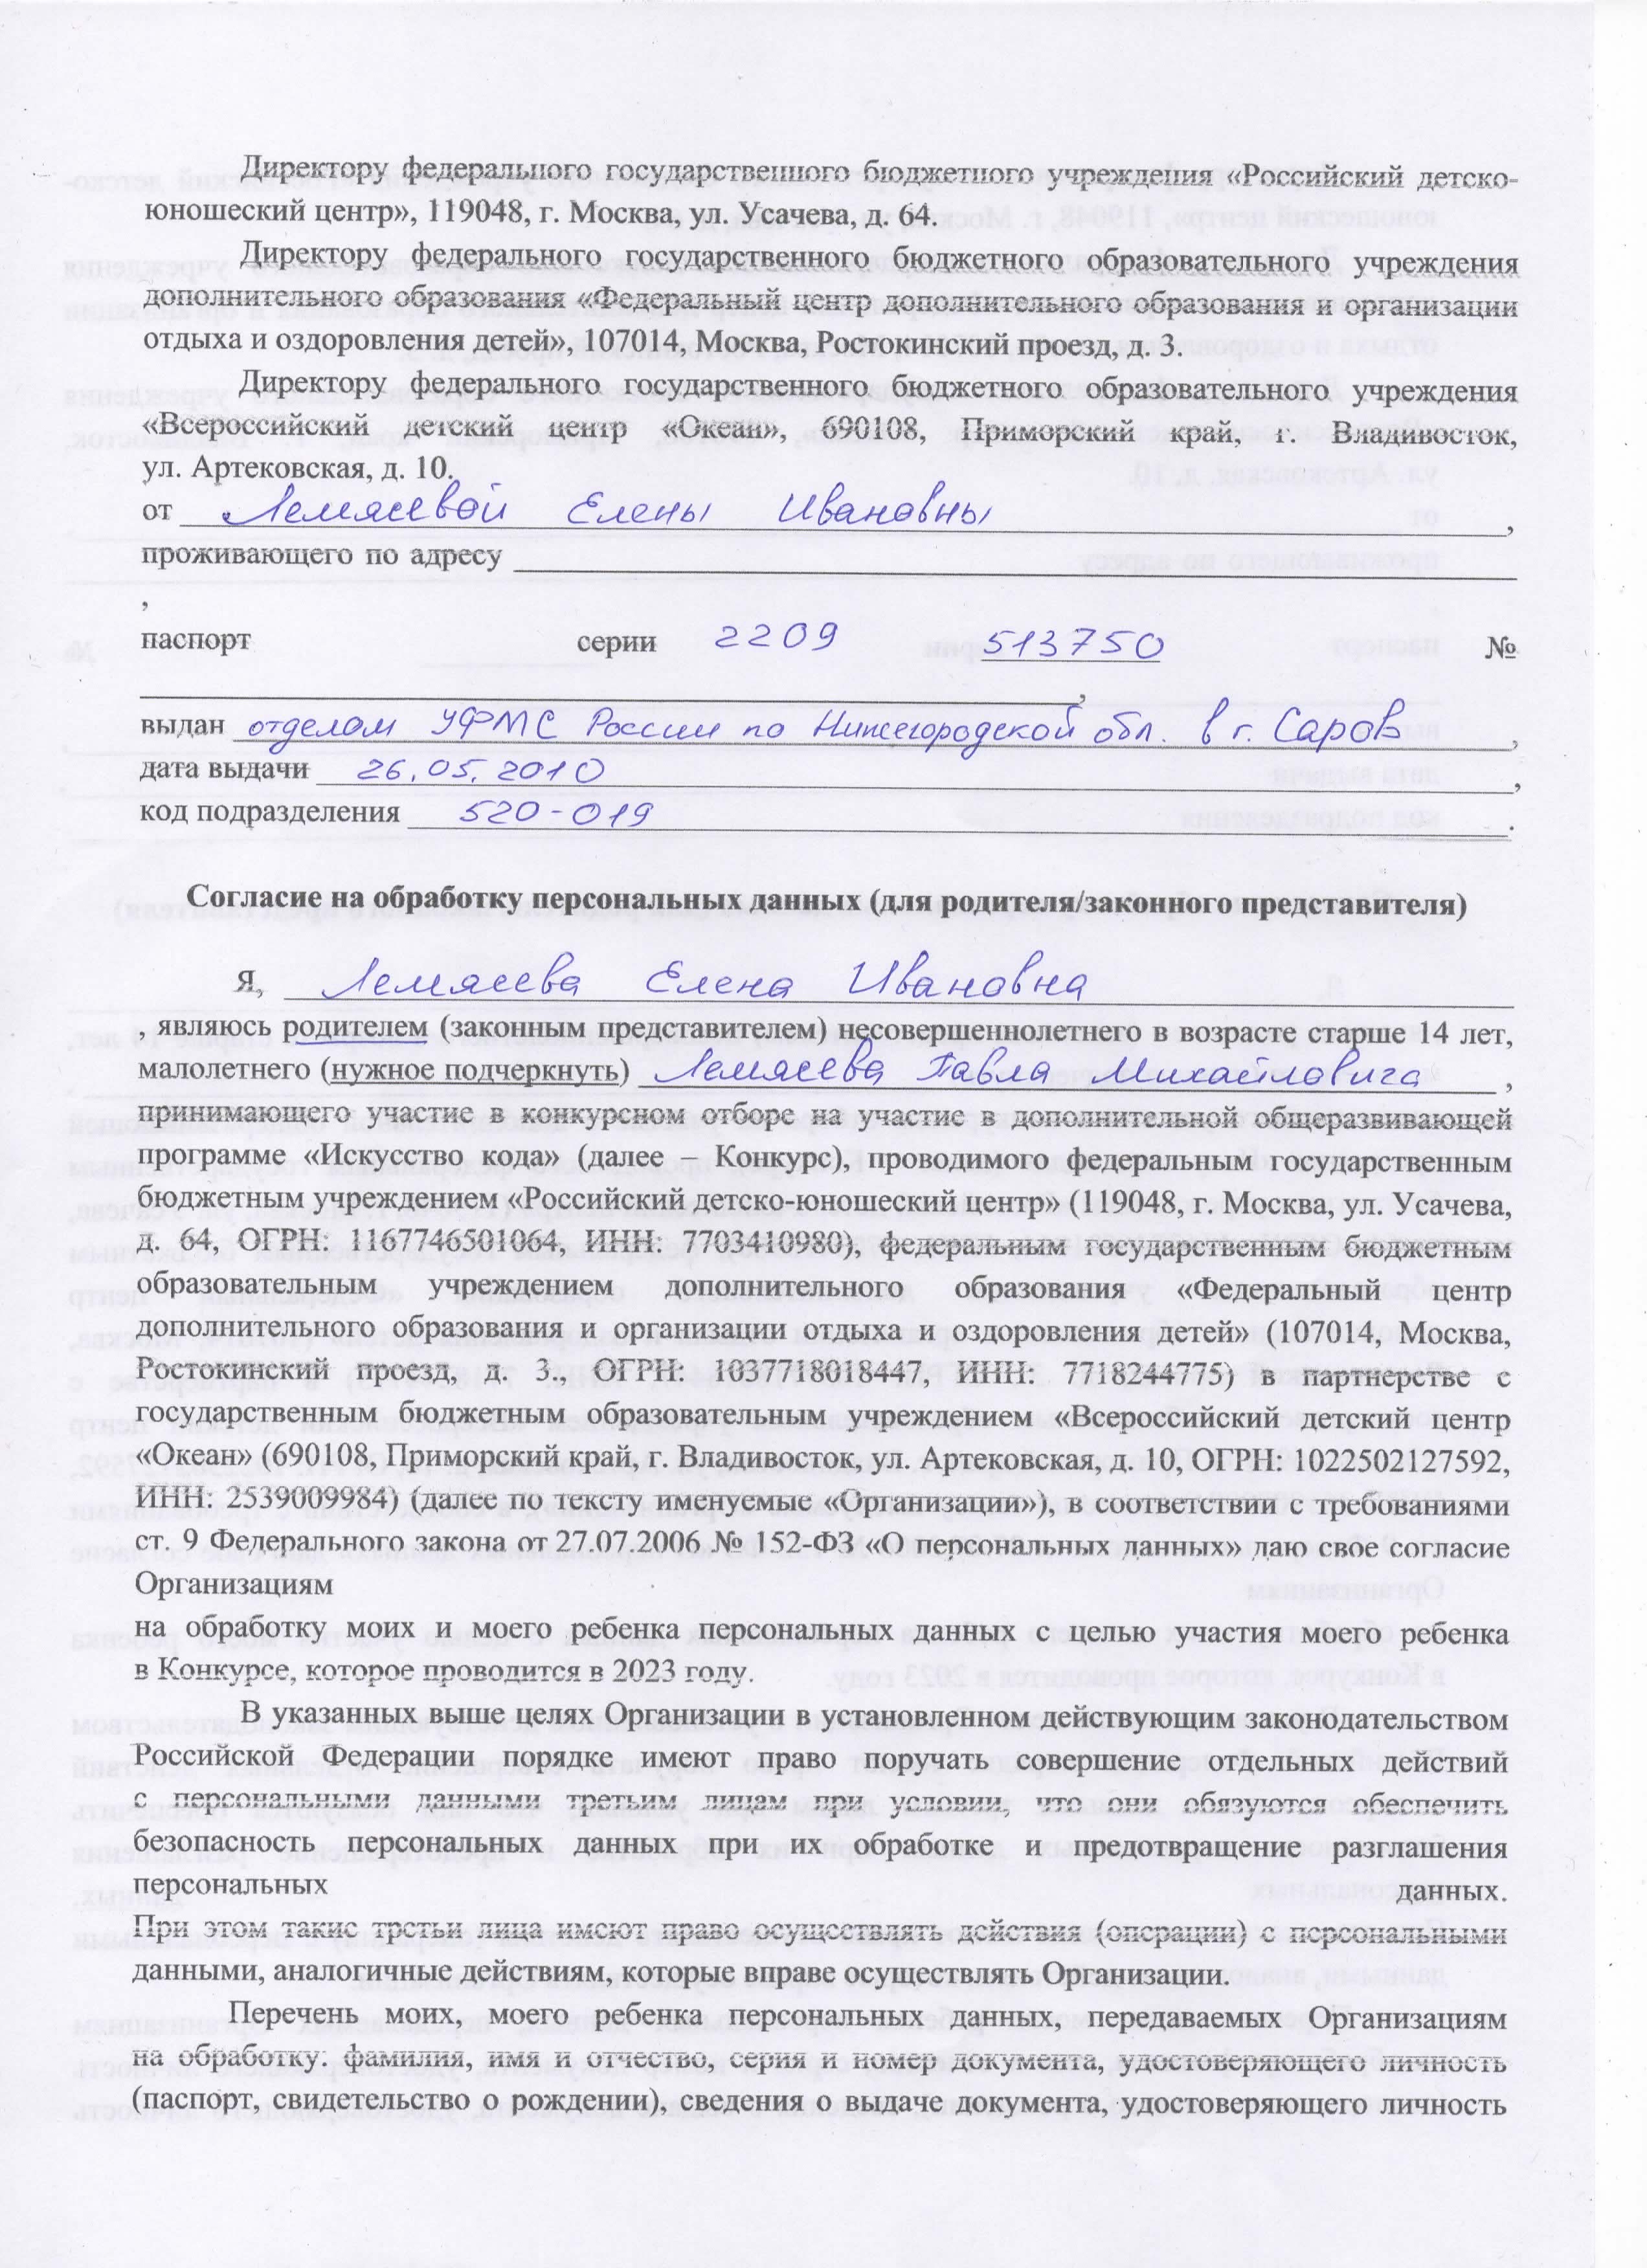 Директору федерального государственного бюджетного учреждения «Российский детско-
юношеский центр», 119048, г. Москва, ул. Усачева, д. 64.
Директору федерального государственного бюджетного образовательного учреждения
дополнительного образования «Федеральный центр дополнительного образования и организации
отдыха и оздоровления детей», 107014, Москва, Ростокинский проезд, д. 3.
Директору федерального государственного бюджетного образовательного учреждения
«Всероссийский детский центр «Океан», 690108, Приморский край, г. Владивосток,
ул. Артековская, д. 10.
от Лемясевой Елены Ивановны,
проживающего по адресу
,
паспорт серии 2209 513750 №
,
выдан отделом УФМС России по Нижегородской обл. в г. Саров,
дата выдачи 26.05.2010,
код подразделения 520-019.
Согласие на обработку персональных данных (для родителя/законного представителя)
Я, Лемясева Елена Ивановна
, являюсь родителем (законным представителем) несовершеннолетнего в возрасте старше 14 лет,
малолетнего (нужное подчеркнуть) Лемясева Павла Михайловича,
принимающего участие в конкурсном отборе на участие в дополнительной общеразвивающей
программе «Искусство кода» (далее – Конкурс), проводимого федеральным государственным
бюджетным учреждением «Российский детско-юношеский центр» (119048, г. Москва, ул. Усачева,
д. 64, ОГРН: 1167746501064, ИНН: 7703410980), федеральным государственным бюджетным
образовательным учреждением дополнительного образования «Федеральный центр
дополнительного образования и организации отдыха и оздоровления детей» (107014, Москва,
Ростокинский проезд, д. 3., ОГРН: 1037718018447, ИНН: 7718244775) в партнерстве с
государственным бюджетным образовательным учреждением «Всероссийский детский центр
«Океан» (690108, Приморский край, г. Владивосток, ул. Артековская, д. 10, ОГРН: 1022502127592,
ИНН: 2539009984) (далее по тексту именуемые «Организации»), в соответствии с требованиями
ст. 9 Федерального закона от 27.07.2006 № 152-ФЗ «О персональных данных» даю свое согласие
Организациям
на обработку моих и моего ребенка персональных данных с целью участия моего ребенка
в Конкурсе, которое проводится в 2023 году.
В указанных выше целях Организации в установленном действующим законодательством
Российской Федерации порядке имеют право поручать совершение отдельных действий
с персональными данными третьим лицам при условии, что они обязуются обеспечить
безопасность персональных данных при их обработке и предотвращение разглашения
персональных данных.
При этом такие третьи лица имеют право осуществлять действия (операции) с персональными
данными, аналогичные действиям, которые вправе осуществлять Организации.
Перечень моих, моего ребенка персональных данных, передаваемых Организациям
на обработку: фамилия, имя и отчество, серия и номер документа, удостоверяющего личность
(паспорт, свидетельство о рождении), сведения о выдаче документа, удостоверяющего личность